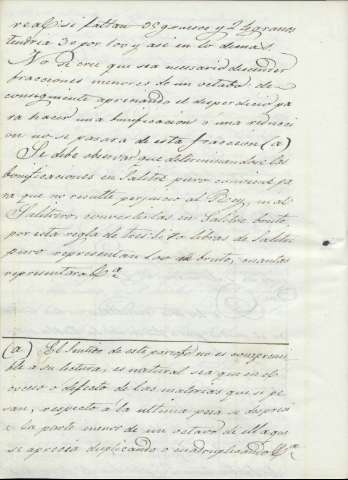 real: si faltan 32 granos y 24 granos
tendria 3 por 100 y asi en lo demas.
No se cree que sea necesario descender
fracciones menores de un octabo: de
consiguiente apreciando el desperdicio pa
ra hacer una bonificacion ó una reducci
on no se pasara de esta fraccion (a)
Se debe observar que determinandose las
bonificaciones en Salitre puro conviene pa
ra que no resulte perjuicio al Rey, ni al
Salitrero, convertirlas en Salitre bruto
por esta regla de tres: Si 70 libras de Salitre
puro representan 100 de bruto, cuantas
representara &.ª
(a) El sentido de este parrafo no es comprensi
ble á su lectura, es natural sea que en el
exceso ó defecto de las materias que se pe
san, respecto á la ultima pesa se despreci
e la parte menor de un octavo de
se aprecia duplicando ó cuadruplicando &.ª